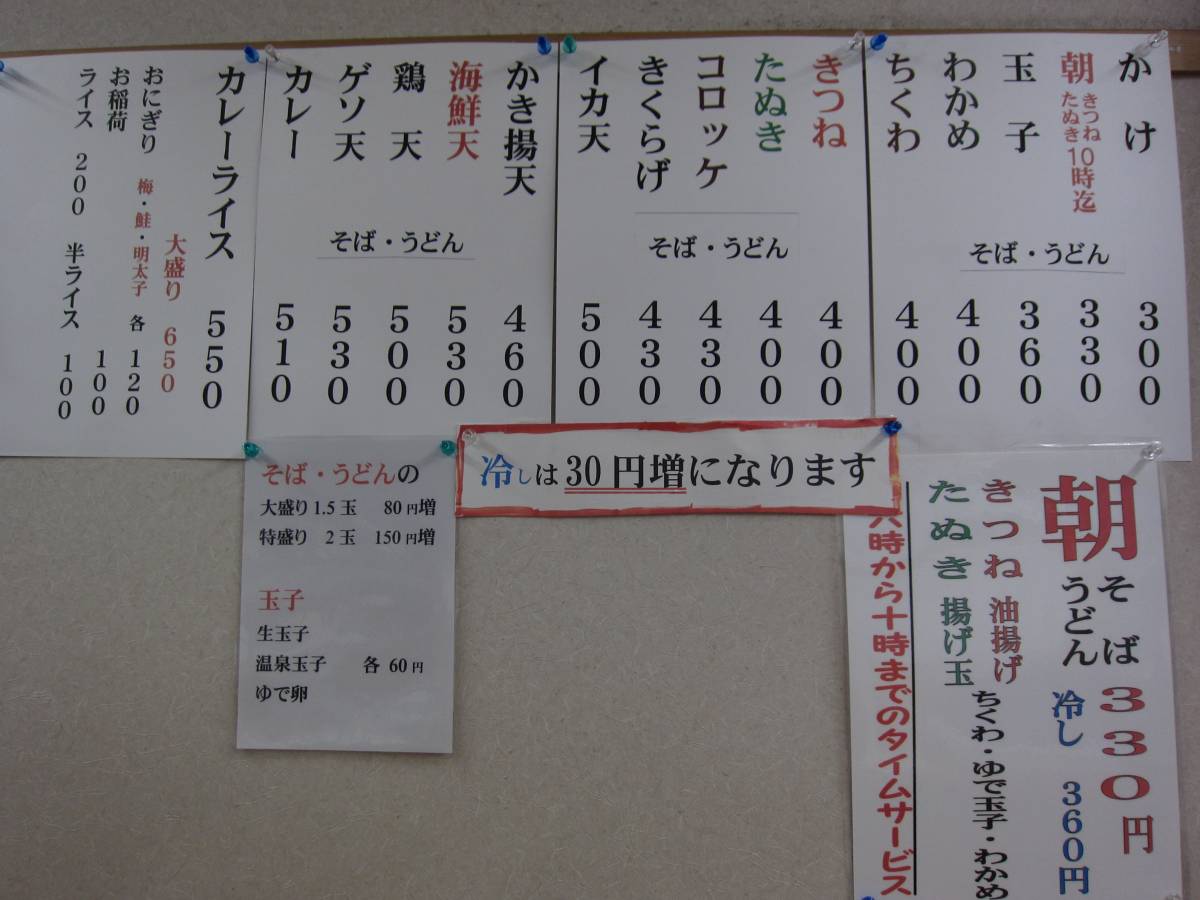 かけ 300
朝 きつね たぬき 10時迄 330
玉子 360
わかめ 400
ちくわ 400
そば・うどん
きつね 400
たぬき 400
コロッケ 430
きくらげ 430
イカ天 500
そば・うどん
かき揚天 460
海鮮天 530
鶏天 500
ゲソ天 530
カレー 510
そば・うどん
カレーライス 550
大盛り 650
おにぎり 梅・鮭・明太子 各 120
お稲荷 100
ライス 200 半ライス 100
冷しは30円増になります
そば・うどんの
大盛り 1.5玉 80円増
特盛り 2玉 150円増
玉子
生玉子
温泉玉子 各 60円
ゆで卵
朝そば 330円
うどん 冷し 360円
きつね 油揚げ
ちくわ・ゆで玉子・わかめ
たぬき 揚げ玉
六時から十時までのタイムサービス